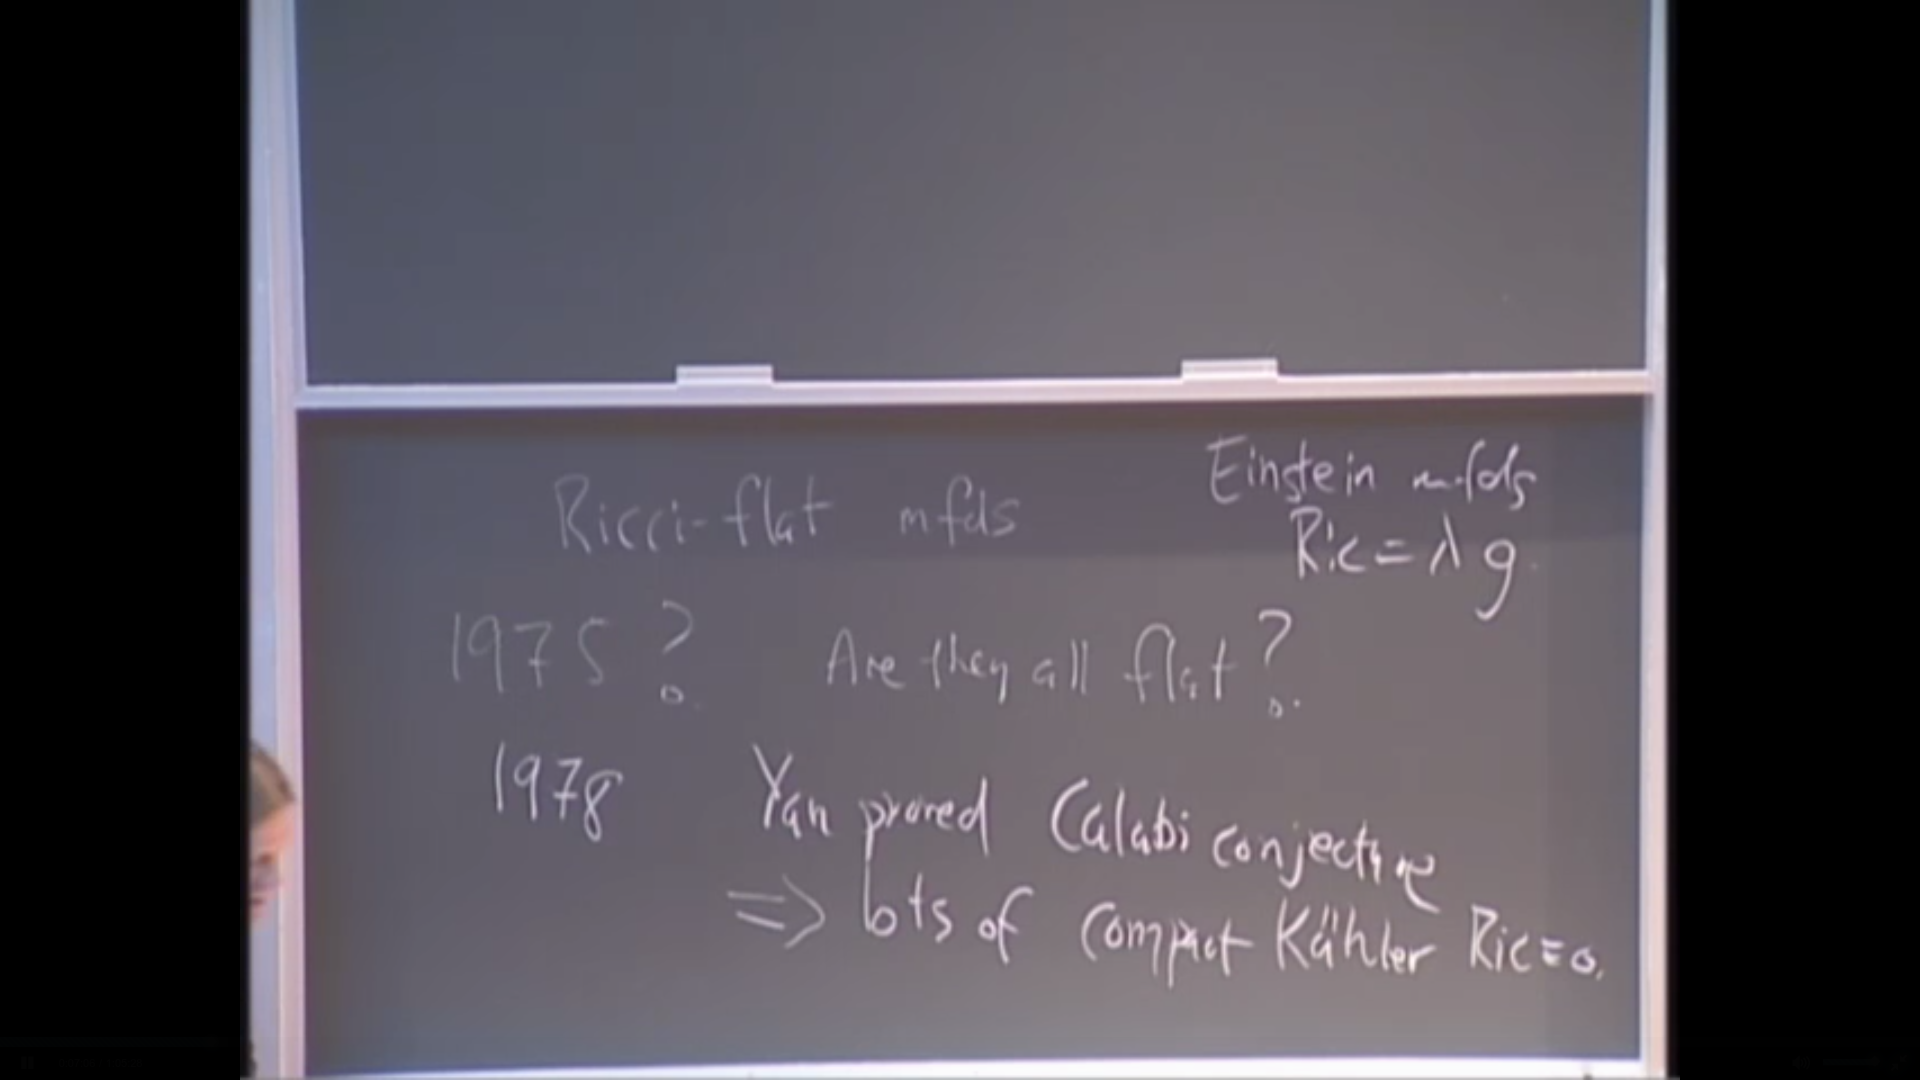 Einstein mfds
Ricci-flat mfds
Ric = λ g.
1975 ? Are they all flat ?
1978 Yau proved Calabi conjecture
⇒ lots of compact Kähler Ric = 0.